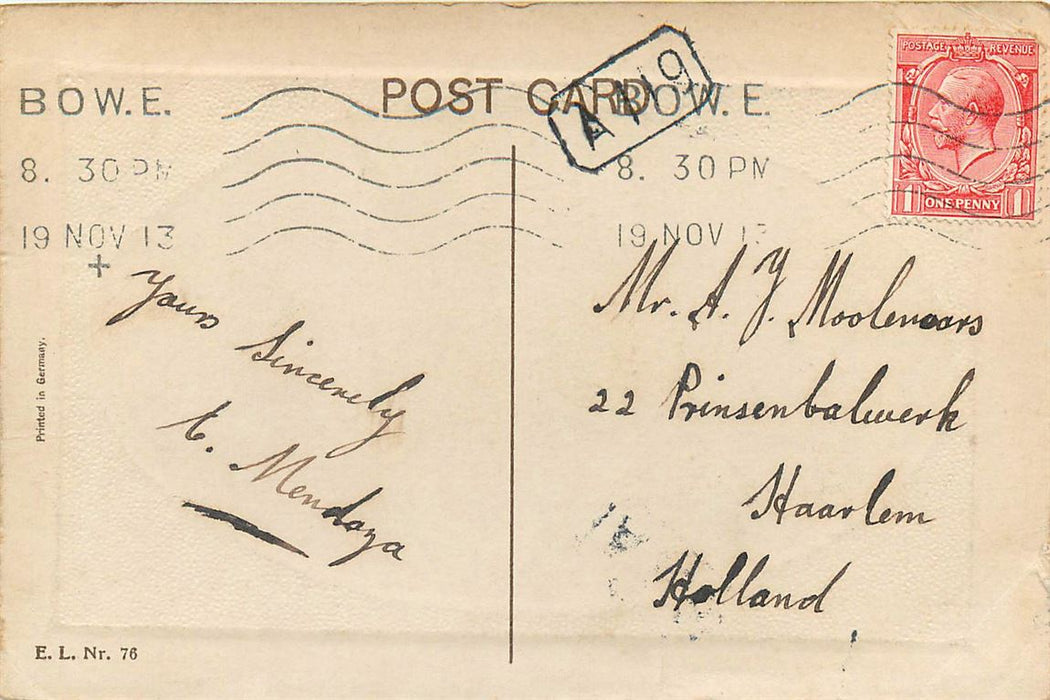 POST CARD
BOW.E.
8. 30 PM
19 NOV 13
+
BOW.E.
8. 30 PM
19 NOV 13
POSTAGE REVENUE
1 ONE PENNY 1
Yours
Sincerely
E. Mendoza
Mr. A. J. Moolenaars
22 Prinsenbalwerk
Haarlem
Holland
Printed in Germany.
E. L. Nr. 76